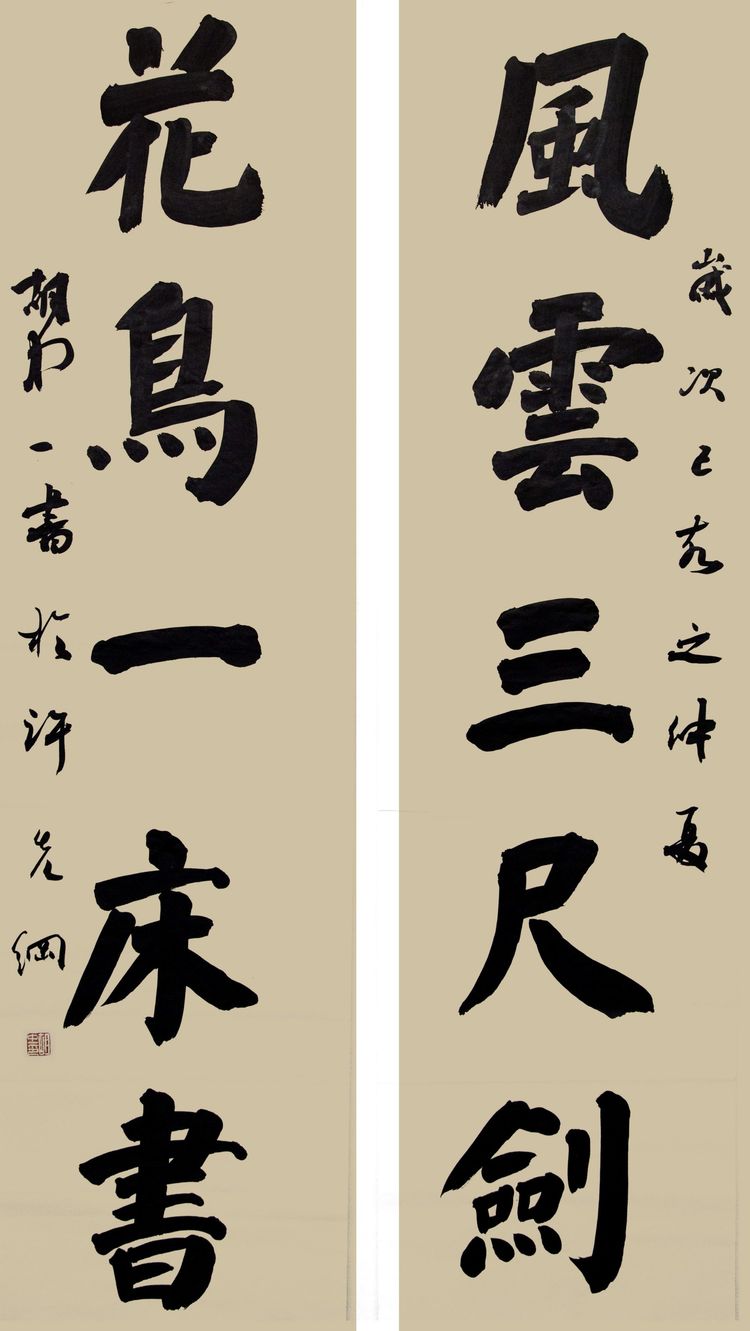 歲次己亥之仲夏
風雲三尺劍
花鳥一床書
胡一書於許綱